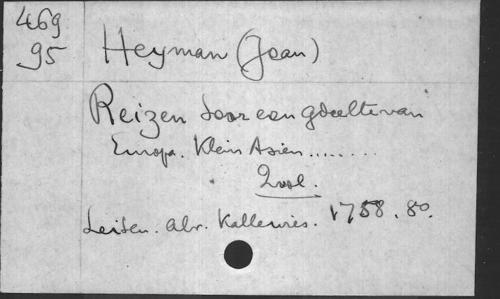 469
95
Heyman (Jean)
Reizen door een gdeelte van
Europa. Klein Asien........
2 vol.
Leiden. Abr. Kallewies. 1758. 80.